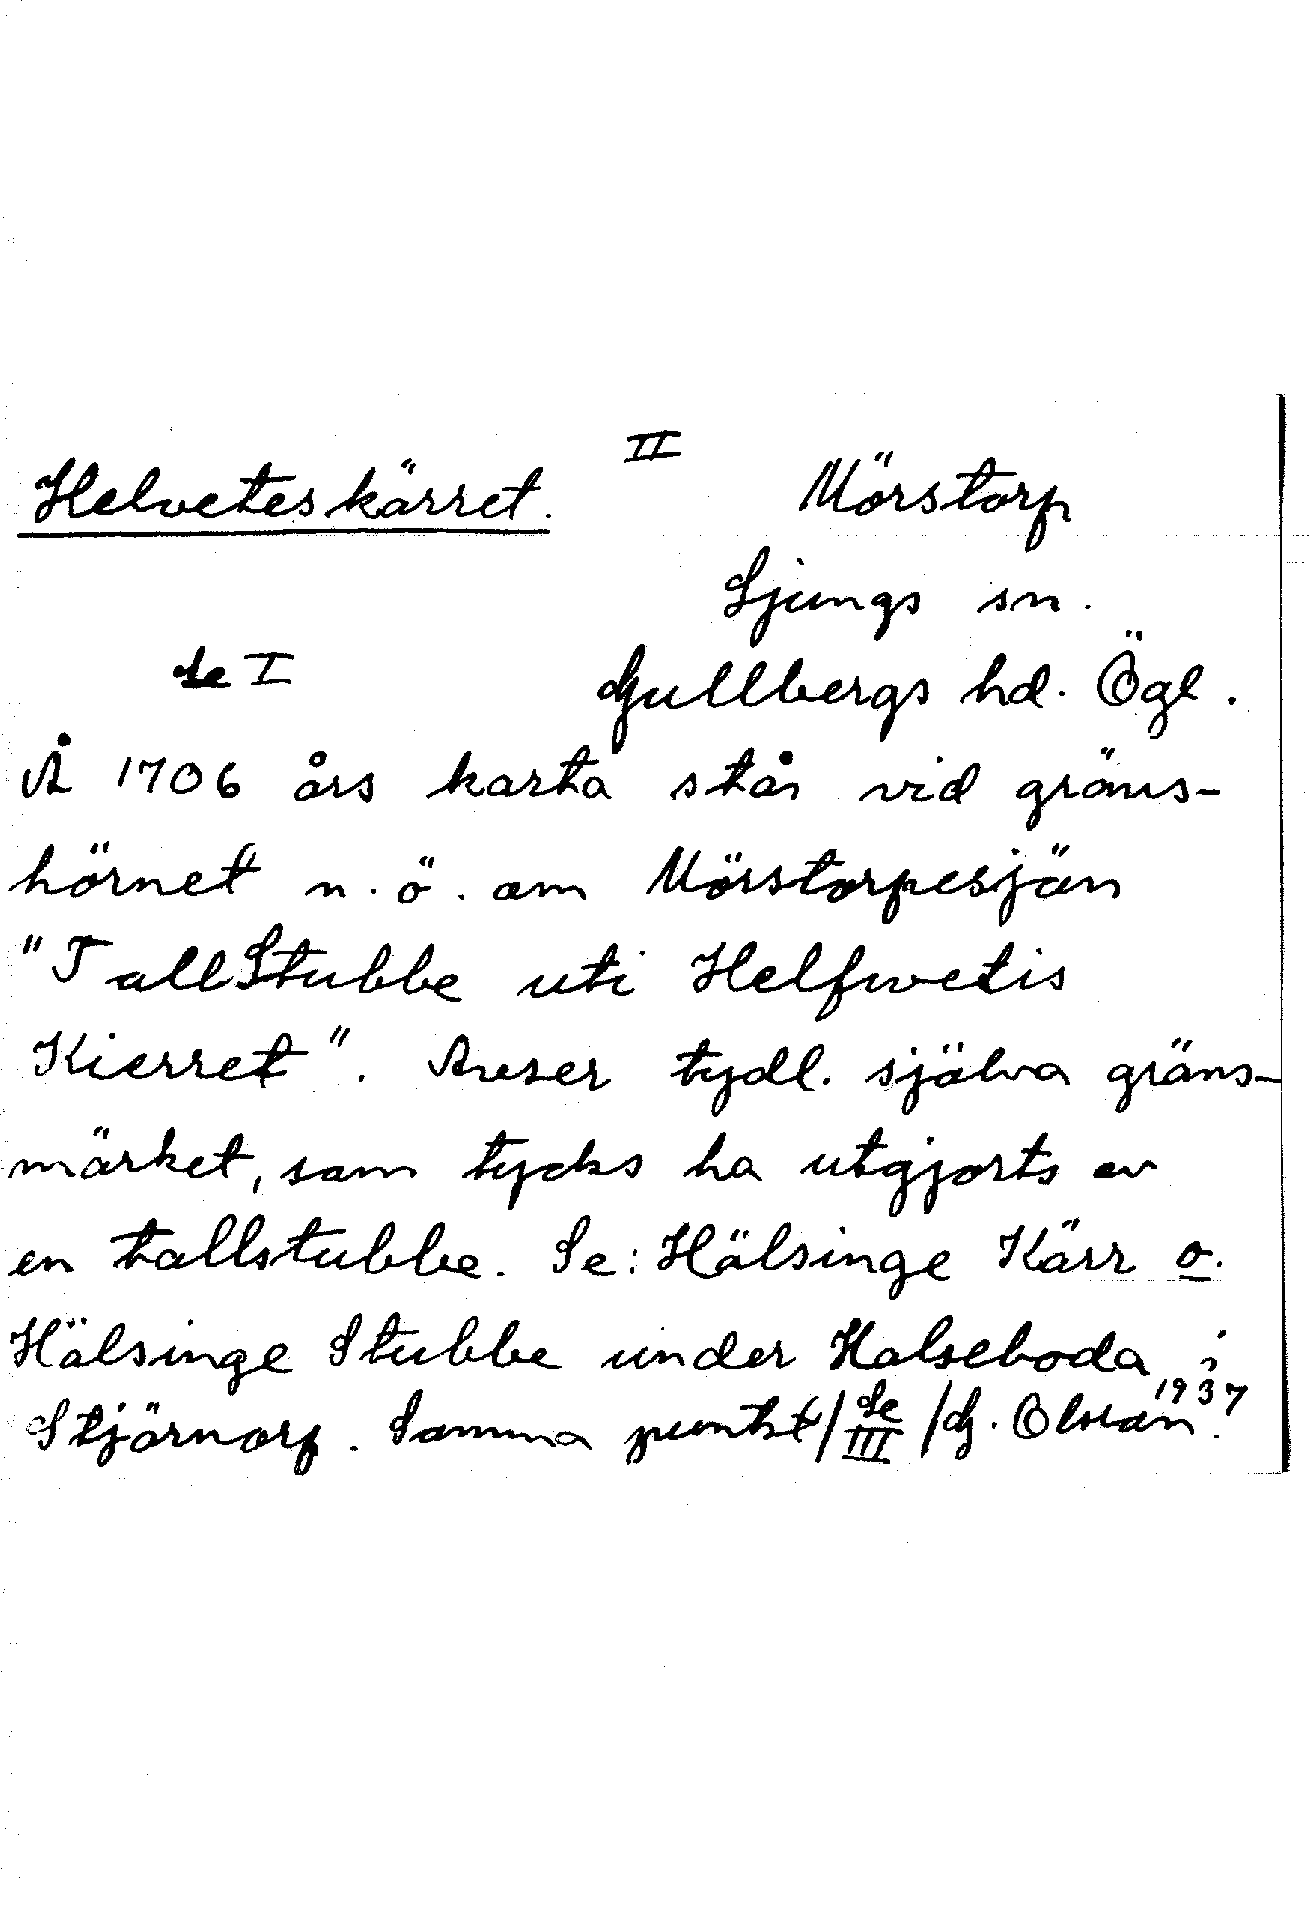 II
Helveteskärret. Mörstorp
Ljungs sn.
Se I Gullbergs hd. Ögl.
Å 1706 års karta står vid gräns-
hörnet n.ö. om Mörstorpesjön
"TallStubbe uti Helfwetis
Kierret". Avser tydl. själva gräns-
märket, som tycks ha utgjorts av
en tallstubbe. Se: Hälsinge Kärr o.
Hälsinge Stubbe under Halseboda i
Stjärnorp. Samma punkt/Se III/G. Olsson 1937.